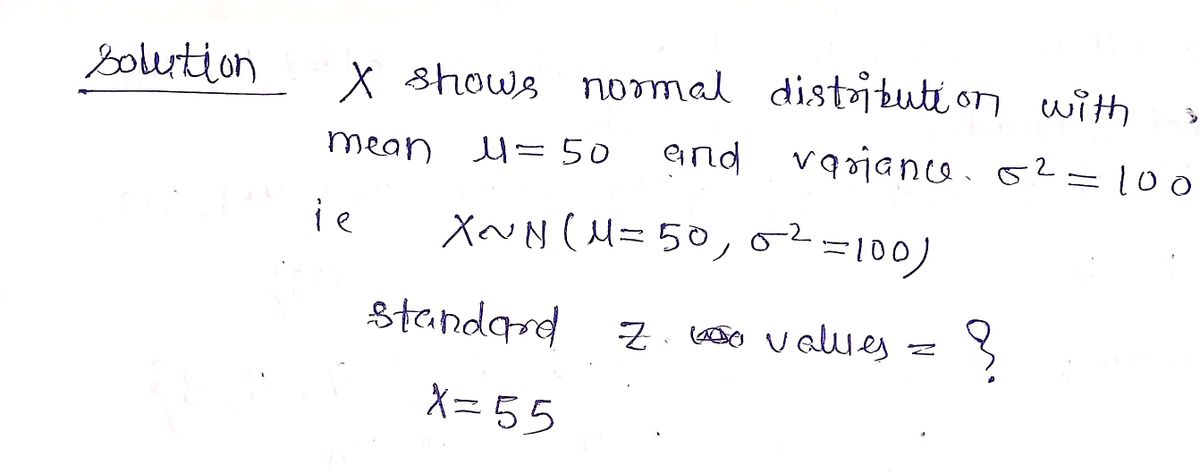 Solution X shows normal distribution with
mean μ = 50 and variance. σ² = 100
ie X ~ N (μ = 50, σ² = 100)
standard Z. values = ?
X = 55